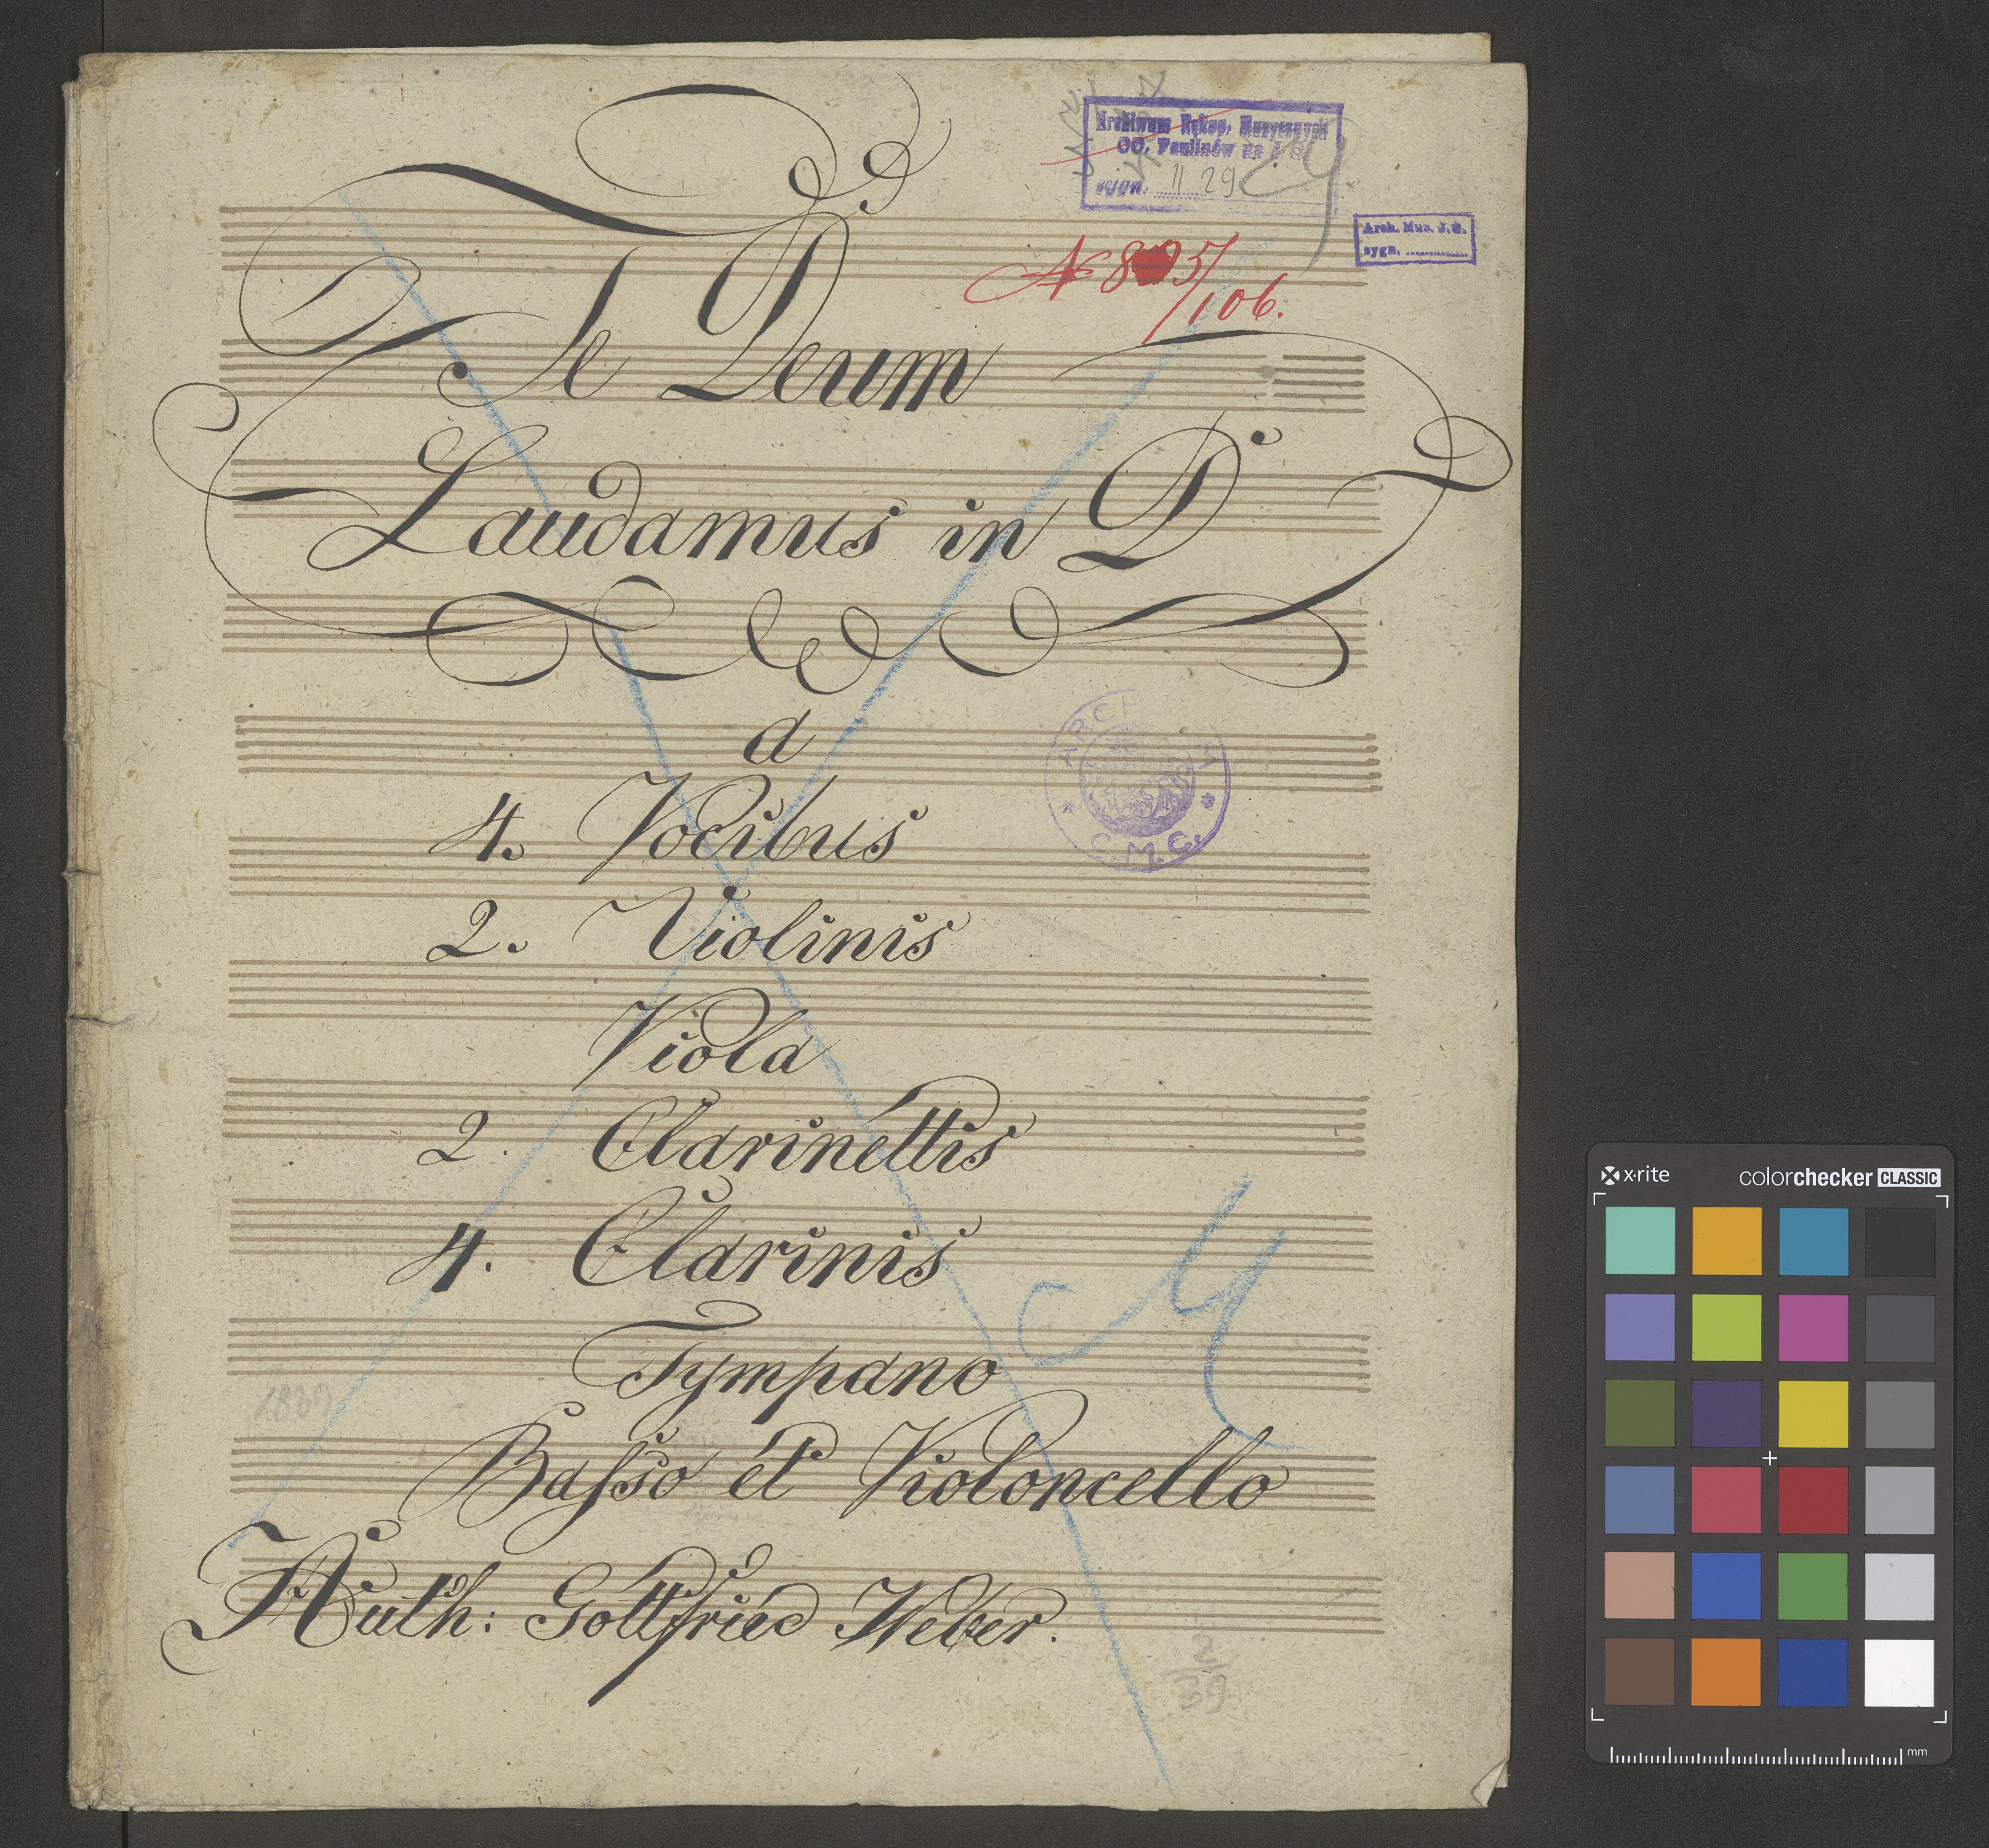 Archiwum Rękop. Muzycznych
OO. Paulinów na J. G.
sygn. II 29
Arch. Muz. J. G.
sygn. ..............
Te Deum
Laudamus in D
a
4. Vocibus
2. Violinis
Viola
2. Clarinettis
4. Clarinis
Tympano
Basso et Violoncello
Auth: Gottfried Weber.
106.
C.M.C.
1839
2
39
x·rite
colorchecker CLASSIC
mm